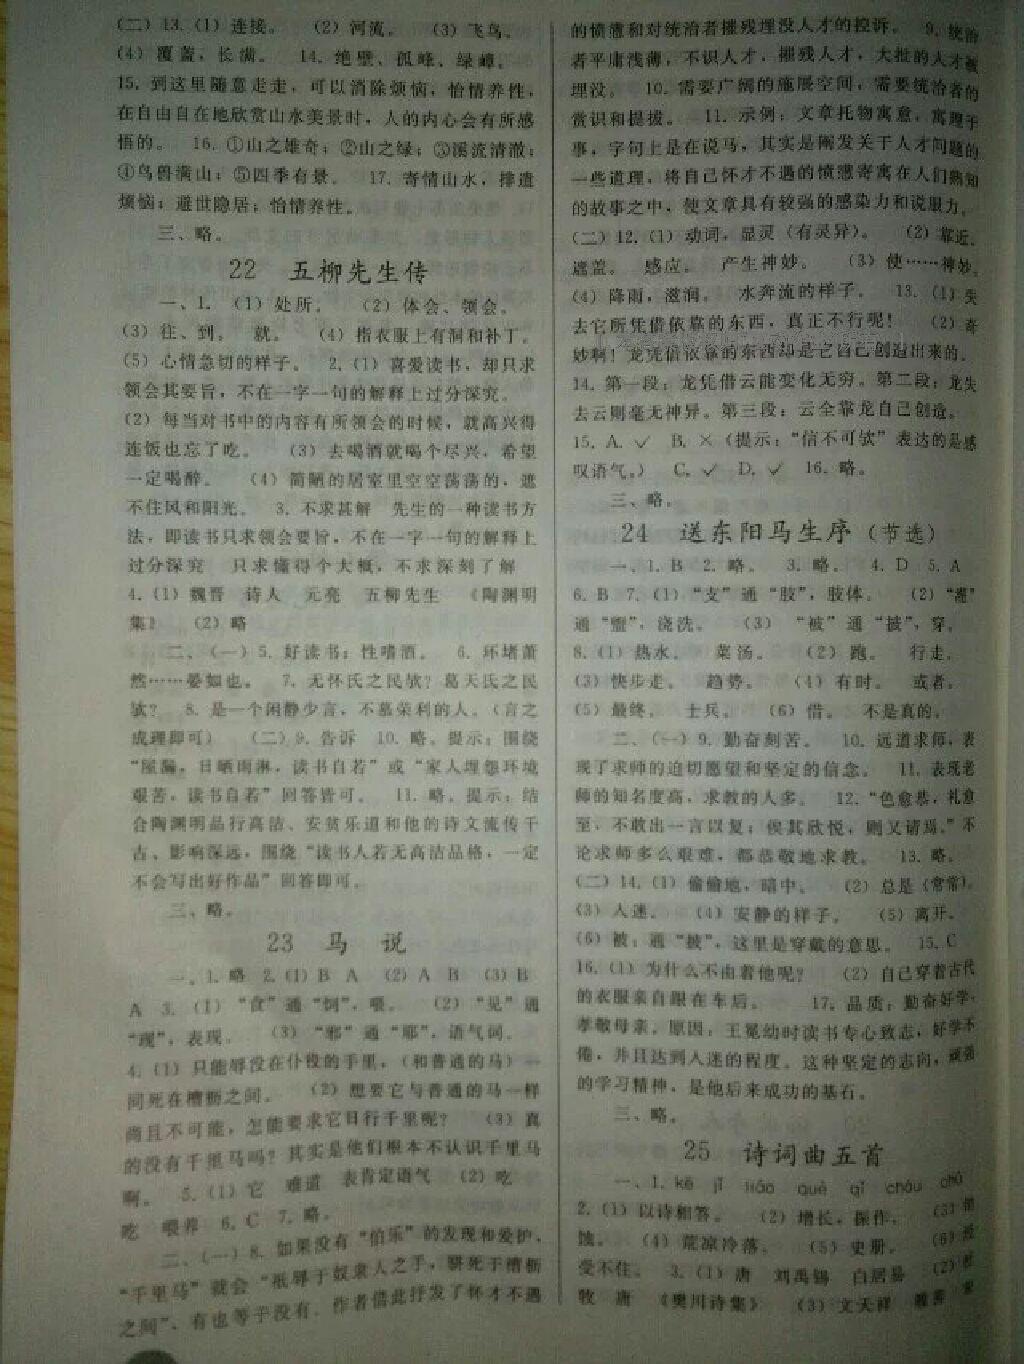 (二) 13. (1) 连接。 (2) 河流。 (3) 飞鸟。
(4) 覆盖,长满。 14. 绝壁、孤峰、绿嶂。
15. 到这里随意走走,可以消除烦恼,怡情养性,
在自由自在地欣赏山水美景时,人的内心会有所感
悟的。 16. ①山之雄奇;②山之绿;③溪流清澈;
④鸟兽满山;⑤四季有景。 17. 寄情山水,排遣
烦恼;避世隐居;怡情养性。
三、略。
22 五柳先生传
一、1. (1) 处所。 (2) 体会、领会。
(3) 往、到。 就。 (4) 指衣服上有洞和补丁。
(5) 心情急切的样子。 2. (1) 喜爱读书,却只求
领会其要旨,不在一字一句的解释上过分深究。
(2) 每当对书中的内容有所领会的时候,就高兴得
连饭也忘了吃。 (3) 去喝酒就喝个尽兴,希望
一定喝醉。 (4) 简陋的居室里空空荡荡的,遮
不住风和阳光。 3. 不求甚解 先生的一种读书方
法,即读书只求领会要旨,不在一字一句的解释上
过分深究 只求懂得个大概,不求深刻了解
4. (1) 魏晋 诗人 元亮 五柳先生 《陶渊明
集》 (2) 略
二、(一) 5. 好读书;性嗜酒。 6. 环堵萧
然……晏如也。 7. 无怀氏之民欤?葛天氏之民
欤? 8. 是一个闲静少言,不慕荣利的人。(言之
成理即可) (二) 9. 告诉 10. 略。提示:围绕
“屋漏,日晒雨淋,读书自若”或“家人埋怨环境
艰苦,读书自若”回答皆可。 11. 略。提示:结
合陶渊明品行高洁、安贫乐道和他的诗文流传千
古、影响深远,围绕“读书人若无高洁品格,一定
不会写出好作品”回答即可。
三、略。
23 马 说
一、1. 略 2. (1) B A (2) A B (3) B
A 3. (1) “食”通“饲”,喂。 (2) “见”通
“现”,表现。 (3) “邪”通“耶”,语气词。
4. (1) 只能辱没在仆役的手里,(和普通的马)一
同死在槽枥之间。 (2) 想要它与普通的马一样
尚且不可能,怎能要求它日行千里呢? (3) 真
的没有千里马吗?其实是他们根本不认识千里马
啊。 5. (1) 它 难道 表肯定语气 (2) 吃
吃 喂养 6. C 7. 略。
二、(一) 8. 如果没有“伯乐”的发现和爱护,
“千里马”就会“祗辱于奴隶人之手,骈死于槽枥
之间”,有也等于没有。作者借此抒发了怀才不遇
的愤懑和对统治者摧残埋没人才的控诉。 9. 统治
者平庸浅薄,不识人才,摧残人才,大批的人才被
埋没。 10. 需要广阔的施展空间,需要统治者的
赏识和提拔。 11. 示例:文章托物寓意,寓理于
事,字句上是在说马,其实是阐发关于人才问题的
一些道理,将自己怀才不遇的愤懑寄寓在人们熟知
的故事之中,使文章具有较强的感染力和说服力。
(二) 12. (1) 动词,显灵(有灵异)。 (2) 靠近、
遮盖。 感应。 产生神妙。 (3) 使……神妙。
(4) 降雨,滋润。 水奔流的样子。 13. (1) 失
去它所凭借依靠的东西,真正不行呢! (2) 奇
妙啊!龙凭借依靠的东西却是它自己创造出来的。
14. 第一段:龙凭借云能变化无穷。第二段:龙失
去云则毫无神异。第三段:云全靠龙自己创造。
15. A. ✓ B. ×(提示:“信不可欤”表达的是感
叹语气。) C. ✓ D. ✓ 16. 略。
三、略。
24 送东阳马生序(节选)
一、1. B 2. 略。 3. 略。 4. D 5. A
6. B 7. (1) “支”通“肢”,肢体。 (2)
通“盥”,浇洗。 (3) “被”通“披”,穿。
8. (1) 热水。 菜汤。 (2) 跑。 行走。
(3) 快步走。 趋势。 (4) 有时。 或者。
(5) 最终。 士兵。 (6) 借。 不是真的。
二、(一) 9. 勤奋刻苦。 10. 远道求师,表
现了求师的迫切愿望和坚定的信念。 11. 表现老
师的知名度高,求教的人多。 12. “色愈恭,礼愈
至,不敢出一言以复;俟其欣悦,则又请焉。”不
论求师多么艰难,都恭敬地求教。 13. 略。
(二) 14. (1) 偷偷地,暗中。 (2) 总是(常常)。
(3) 入迷。 (4) 安静的样子。 (5) 离开。
(6) 被:通“披”,这里是穿戴的意思。 15. C
16. (1) 为什么不由着他呢? (2) 自己穿着古代
的衣服亲自跟在车后。 17. 品质:勤奋好学、
孝敬母亲。原因:王冕幼时读书专心致志,好学不
倦,并且达到入迷的程度。这种坚定的志向,顽强
的学习精神,是他后来成功的基石。
三、略。
25 诗词曲五首
一、1. kē jī jiáo què qǐ chóu
2. (1) 以诗相答。 (2) 增长,振作。 (3)
蚀。 (4) 荒凉冷落。 (5) 史册。 (6)
受不住。 3. (1) 唐 刘禹锡 白居易 (2) 杜
牧 唐 《樊川诗集》 (3) 文天祥